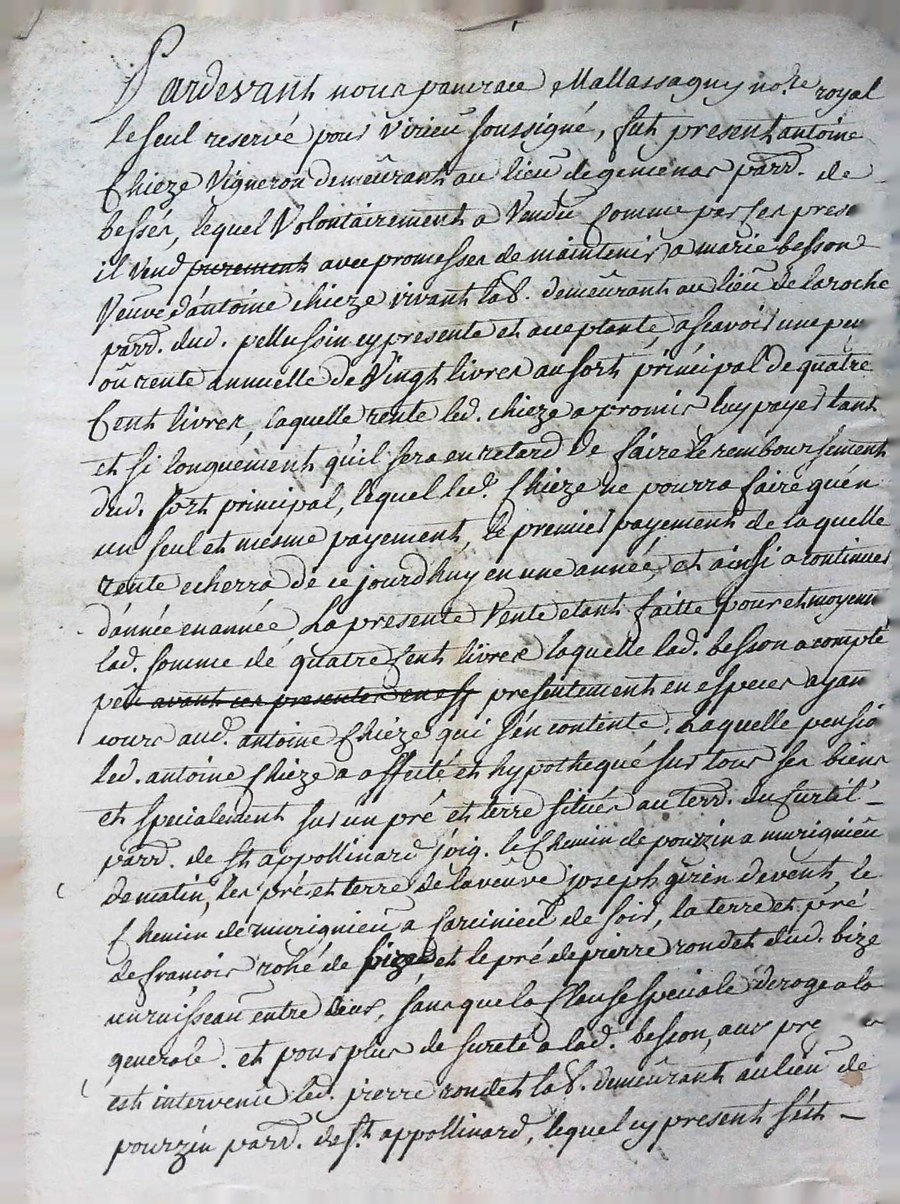 Pardevant nous pancrace Mallassagny no.re royal
le seul reservé pour virieu soussigné, fut present antoine
Chieze Vigneron demeurant au lieu de gemenas parr. de
bessey, lequel Volontairement a Vendu comme par ses prese
il Vend purement avec promesses de maintenir a marie besson
Veuve d'antoine chieze vivant lab. demeurant au lieu de laroche
parr. dud. pellussin cy presente et acceptante, ascavoir une pen
où rente annuelle de Vingt livres au sort principal de quatre
Cent livres, laquelle rente led. chieze a promis luy payer tant
et si longuement qu'il sera en retard de faire le remboursement
dud. sort principal, lequel led. Chieze ne pourra faire qu'en
un seul et mesme payement, le premier payement de laquelle
rente echerra de ce jourdhuy en une année, et ainsi a continuer
d'année en année, La presente Vente etant faitte pour et moyenn
lad. somme de quatre Cent livres laquelle lad. besson a compté
peu avant ces presentes en esp presentement en especes ayan
cours aud. antoine Chieze qui s'en contente. Laquelle pensio
led. antoine Chieze a affecté et hypothequé sur tous ses biens
et specialement sur un pré et terre situés au terr. du
parr. de st appollinard joig. le Chemin de pourzin a murignieu
de matin, les pré et terre de la veuve joseph girin de vent, le
Chemin de murignieu a de soir, la terre et pré
de francois rohé de bize, et le pré de pierre rondet dud. bize
un ruisseau entre deux, sans que la Clause speciale deroge a la
generale. et pour plus de sureté a lad. besson, aux pre
est intervenu led. pierre rondet lab. demeurant au lieu de
pourzin parr. de st. appollinard, lequel cy present s'est